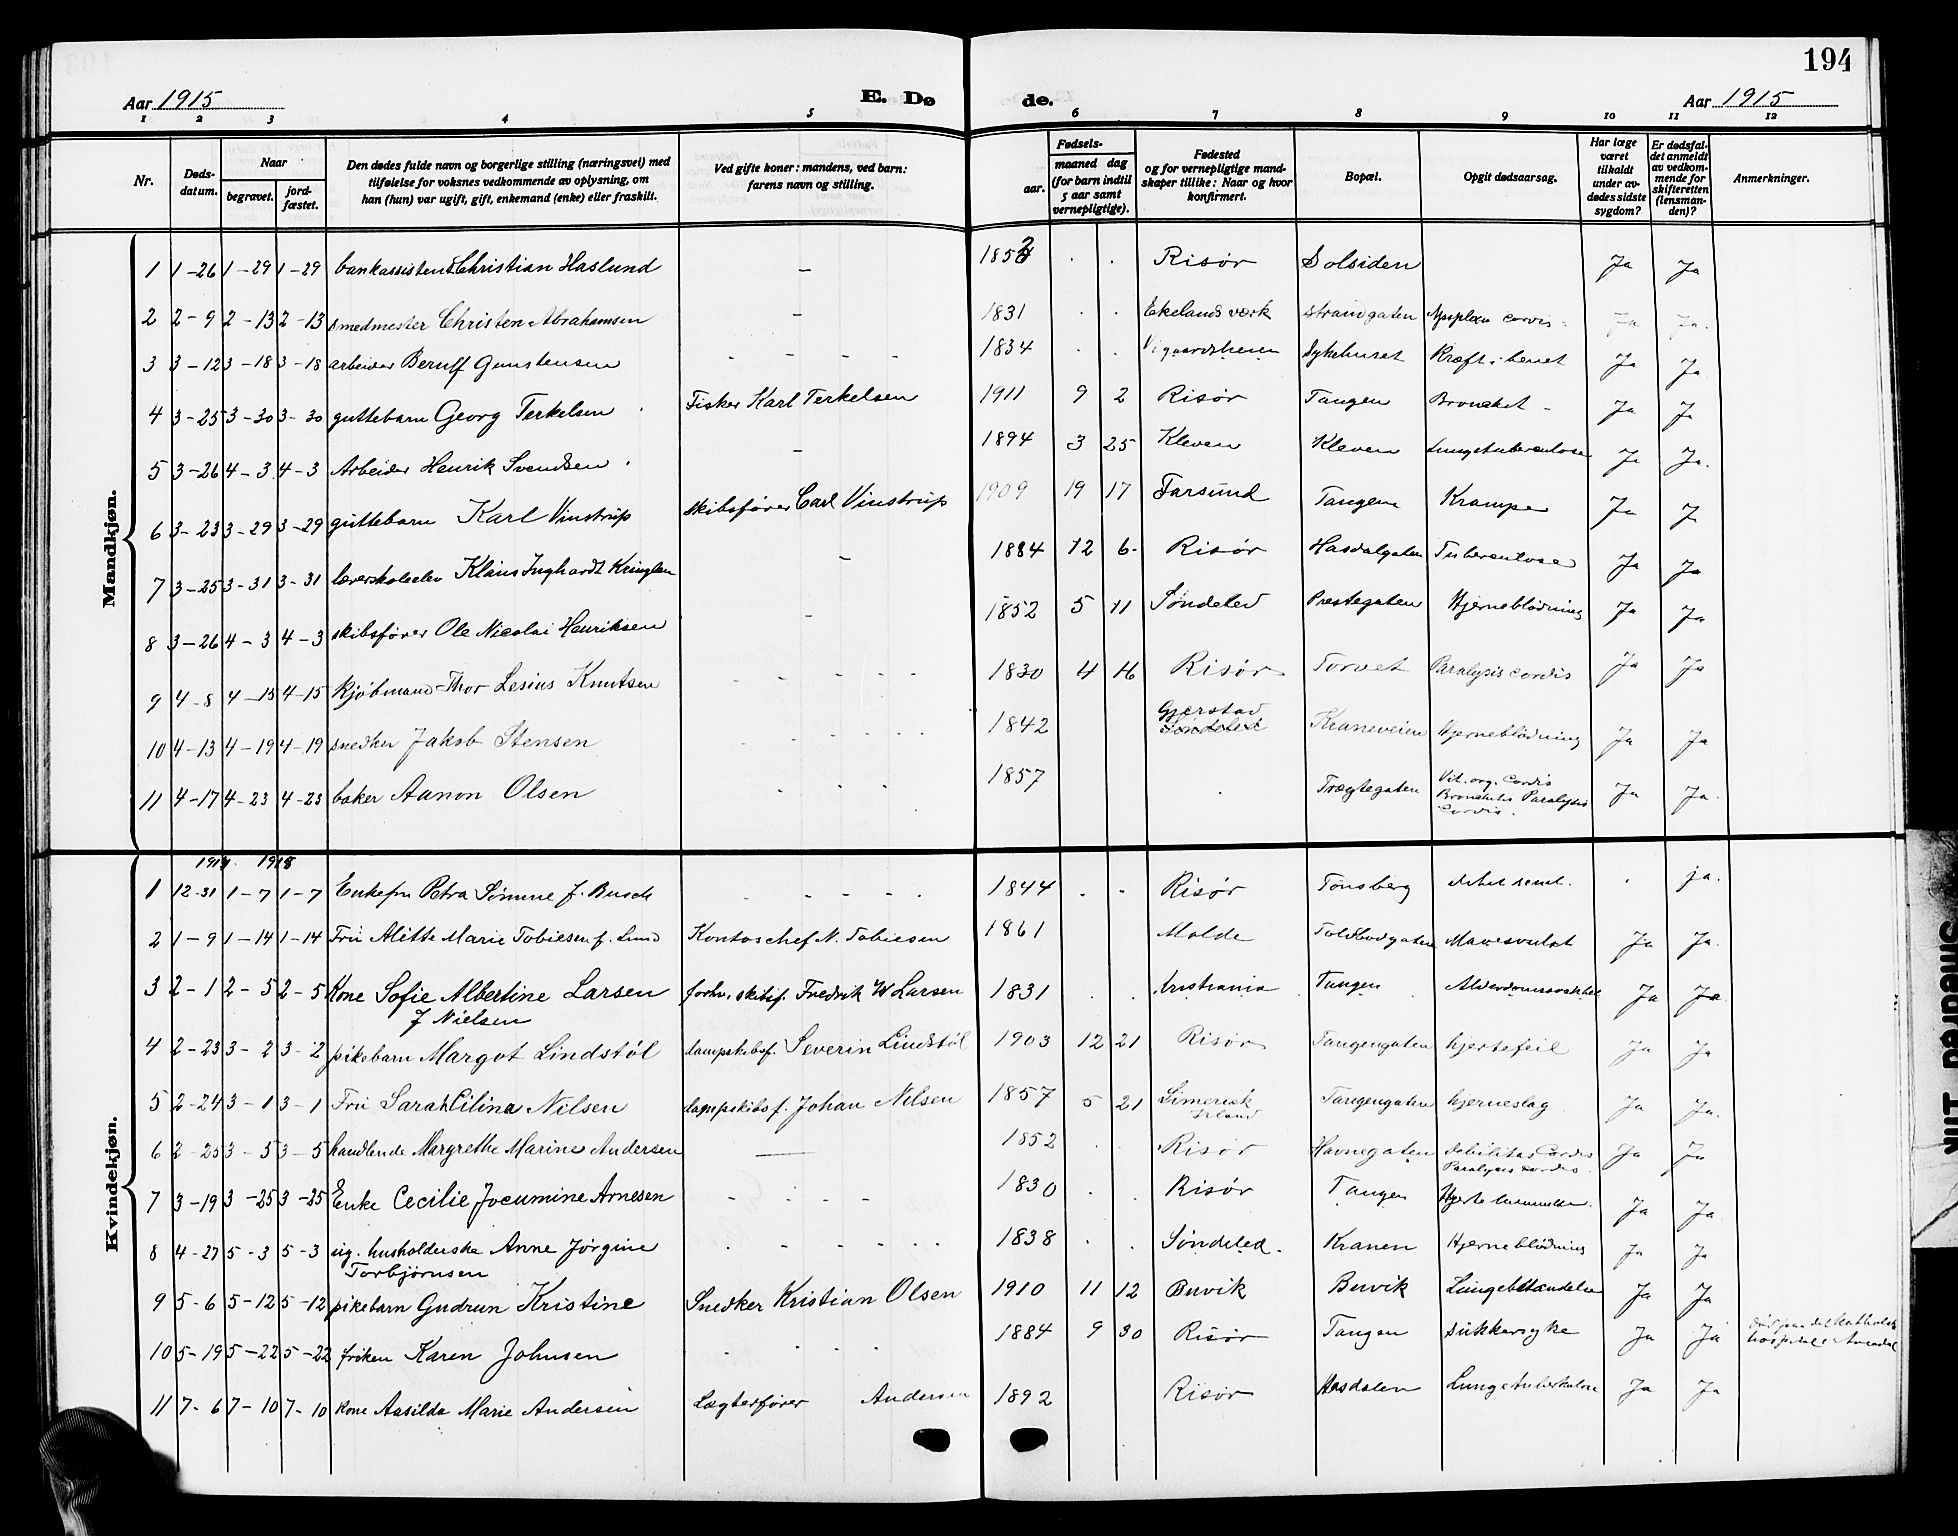 194
Aar 1915
E. Døde.
Aar 1915
1 2 3 4 5 6 7 8 9 10 11 12
Nr.
Dødsdatum.
Naar
begravet.
jordfæstet.
Den dødes fulde navn og borgerlige stilling (næringsvei) med
tilføielse for voksnes vedkommende av oplysning, om
han (hun) var ugift, gift, enkemand (enke) eller fraskilt.
Ved gifte koner: mandens, ved barn:
farens navn og stilling.
Fødsels-
aar.
maaned dag
(for barn indtil
5 aar samt
vernepligtige).
Fødested
og for vernepligtige mand-
skaper tillike: Naar og hvor
konfirmert.
Bopæl.
Opgit dødsaarsag.
Har læge
været
tilkaldt
under av-
dødes sidste
sygdom?
Er dødsfal-
det anmeldt
av vedkom-
mende for
skifteretten
(lensman-
den)?
Anmerkninger.
Mandkjøn.
1 1-26 1-29 1-29 bankassistent Christian Haslund - 1852 . . Risør Solsiden Ja Ja
2 2-9 2-13 2-13 smedmester Christen Abrahamsen - 1831 . . Ekelands værk Strandgaten cordis Ja Ja.
3 3-12 3-18 3-18 arbeider Berulf Gunstensen - - - - 1834 . . Sykehuset Kræft i benet Ja Ja
4 3-25 3-30 3-30 guttebarn Georg Terkelsen Fisker Karl Terkelsen 1911 9 2 Risør Tangen Bronchit - Ja Ja
5 3-26 4-3 4-3 Arbeider Henrik Svendsen - 1894 3 25 Kleven Kleven Lungetuberculose Ja Ja.
6 3-23 3-29 3-29 guttebarn Karl Vinstrup skibsfører Carl Vinstrup 1909 19 17 Farsund Tangen Krampe Ja J
7 3-25 3-31 3-31 lærerskoleelev Klaus Inghardt Kringlen - 1884 12 6- Risør Hasdalgaten Tuberculose Ja Ja
8 3-26 4-3 4-3 skibsfører Ole Nicolai Henriksen - 1852 5 11 Søndeled Prestegaten Hjerneblødning Ja Ja
9 4-8 4-15 4-15 Kjøbmand Thor Lesius Knutsen - - - - 1830 4 16 Risør Torvet Paralysis cordis Ja Ja
10 4-13 4-19 4-19 snedker Jakob Stensen - - - - - 1842 Gjerstad Søndeled Kraneveien Hjerneblødning Ja Ja
11 4-17 4-23 4-23 baker Aanon Olsen - - - - 1857 . Trægtegaten Vit. org. Cordis
Bronchitis Paralysis
Cordis. Ja Ja.
Kvindekjøn.
1914. 1915
1 12-31 1-7 1-7 Enkefru Petra Sømme f. Busch - - - - - 1844 . . Risør Tønsberg debet senil. . ja.
2 1-9 1-14 1-14 Fru Alette Marie Tobiesen f. Lund Kontorchef N. Tobiesen 1861 Molde Toldbodgaten Mavesvulst Ja Ja.
3 2-1 2-5 2-5 Kone Sofie Albertine Larsen
f Nielsen forhv. skibsf. Fredrik W Larsen 1831 . . Kristiania Tangen Ja Ja
4 2-23 3-2 3-2 pikebarn Margot Lindstøl dampskibsf. Severin Lindstøl 1903 12 21 Risør Tangengaten hjertefeil Ja Ja
5 2-24 3-1 3-1 Fru Sarah Cilina Nilsen dampskibsf. Johan Nilsen 1857 5 21 Limerick
Irland Tangengaten hjerneslag Ja Ja.
6 2-25 3-5 3-5 handlende Margrethe Marine Andersen - 1852 . . Risør Havnegaten debilitas Cordis
Paralysis cordis. Ja Ja
7 3-19 3-25 3-25 Enke Cecilie Jocumine Arnesen - - - - 1830 . . Risør Tangen Hjertelammelse. Ja Ja.
8 4-27 5-3 5-3 ug. husholderske Anne Jørgine
Torbjørnsen - - - - - 1838 . . Søndeled. Kranen Hjerneblødning Ja Ja
9 5-6 5-12 5-12 pikebarn Gudrun Kristine Snedker Kristian Olsen 1910 11 12 Buvik Buvik Lungebetændelse Ja Ja
10 5-19 5-22 5-22 frøken Karen Johnsen - - - - 1884 9 30 Risør Tangen sukkersyke Ja Ja Død paa det katholske
hospital i Arendal
11 7-6 7-10 7-10 Kone Aasilda Marie Andersen Lægterfører Andersen 1892 Risør Hasdalen Lungetuberkulose Ja Ja